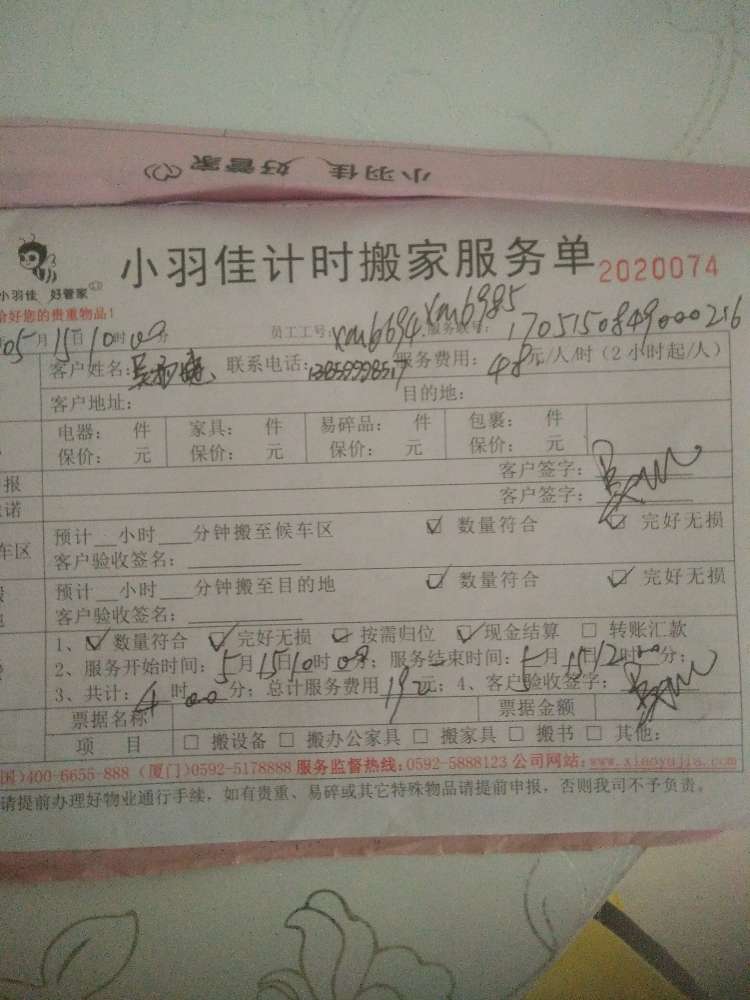 小羽佳 好管家
小羽佳 好管家
小羽佳计时搬家服务单 2020074
给好您的贵重物品!
05月15日10时00分 员工工号:xm6694 xm6985 服务账号:1705150849000216
客户姓名: 联系电话: 服务费用:48元/人/时(2小时起/人)
客户地址: 目的地:
电器: 件 家具: 件 易碎品: 件 包裹: 件
保价: 元 保价: 元 保价: 元 保价: 元
报 客户签字:
诺 客户签字:
预计__小时___分钟搬至候车区 ☑ 数量符合 ☑ 完好无损
车区 客户验收签名:
预计__小时___分钟搬至目的地 ☑ 数量符合 ☑ 完好无损
客户验收签名:
1、☑ 数量符合 ☑ 完好无损 ☑ 按需归位 ☑ 现金结算 □ 转账汇款
2、服务开始时间:5月15日10时00分;服务结束时间:5月15日12时00分;
3、共计:4时00分;总计服务费用192元;4、客户验收签字:
票据名称 票据金额
项 目 □ 搬设备 □ 搬办公家具 □ 搬家具 □ 搬书 □ 其他:
国)400-6655-888 (厦门)0592-5178888 服务监督热线:0592-5888123 公司网站:www.xiaoyujia.com
请提前办理好物业通行手续,如有贵重、易碎或其它特殊物品请提前申报,否则我司不予负责。